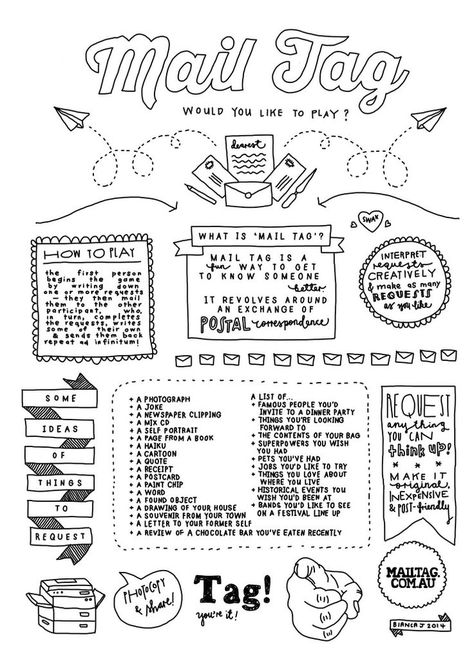 Mail Tag
WOULD YOU LIKE TO PLAY?
dearest
SWAK
HOW TO PLAY
the first person
begins the game
by writing down
one or more requests
– they then mail
them to the other
participant, who,
in turn, completes
the requests, writes
some of their own
& sends them back
repeat ad infinitum!
WHAT IS 'MAIL TAG'?
MAIL TAG IS A
fun WAY TO GET
TO KNOW SOMEONE
better.
IT REVOLVES AROUND
AN EXCHANGE OF
POSTAL correspondence
INTERPRET
requests
CREATIVELY
& make as many
REQUESTS
as you like
SOME
IDEAS
OF
THINGS
TO
REQUEST
+ A PHOTOGRAPH
+ A JOKE
+ A NEWSPAPER CLIPPING
+ A MIX CD
+ A SELF PORTRAIT
+ A PAGE FROM A BOOK
+ A HAIKU
+ A CARTOON
+ A QUOTE
+ A RECEIPT
+ A POSTCARD
+ A PAINT CHIP
+ A WORD
+ A FOUND OBJECT
+ A DRAWING OF YOUR HOUSE
+ A SOUVENIR FROM YOUR TOWN
+ A LETTER TO YOUR FORMER SELF
+ A REVIEW OF A CHOCOLATE BAR YOU'VE EATEN RECENTLY
A LIST OF...
+ FAMOUS PEOPLE YOU'D
INVITE TO A DINNER PARTY
+ THINGS YOU'RE LOOKING
FORWARD TO
+ THE CONTENTS OF YOUR BAG
+ SUPERPOWERS YOU WISH
YOU HAD
+ PETS YOU'VE HAD
+ JOBS YOU'D LIKE TO TRY
+ THINGS YOU LOVE ABOUT
WHERE YOU LIVE
+ HISTORICAL EVENTS YOU
WISH YOU'D BEEN AT
+ BANDS YOU'D LIKE TO SEE
ON A FESTIVAL LINE UP
REQUEST
anything
YOU CAN
think up!
* * *
MAKE IT
original,
INEXPENSIVE
& post-friendly
PHOTOCOPY
& share!
Tag!
you're it!
MAILTAG.
COM.AU
BIANCA J 2014